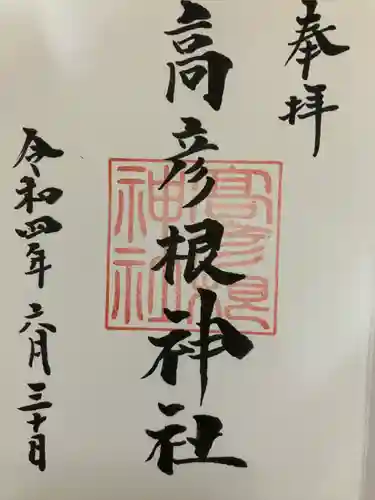 奉拝
高彦根神社
高彦根
神社
令和四年六月三十日